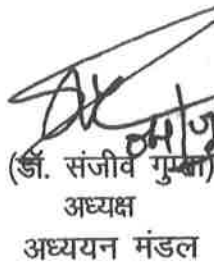 (डॉ. संजीव गुप्ता)
अध्यक्ष
अध्ययन मंडल